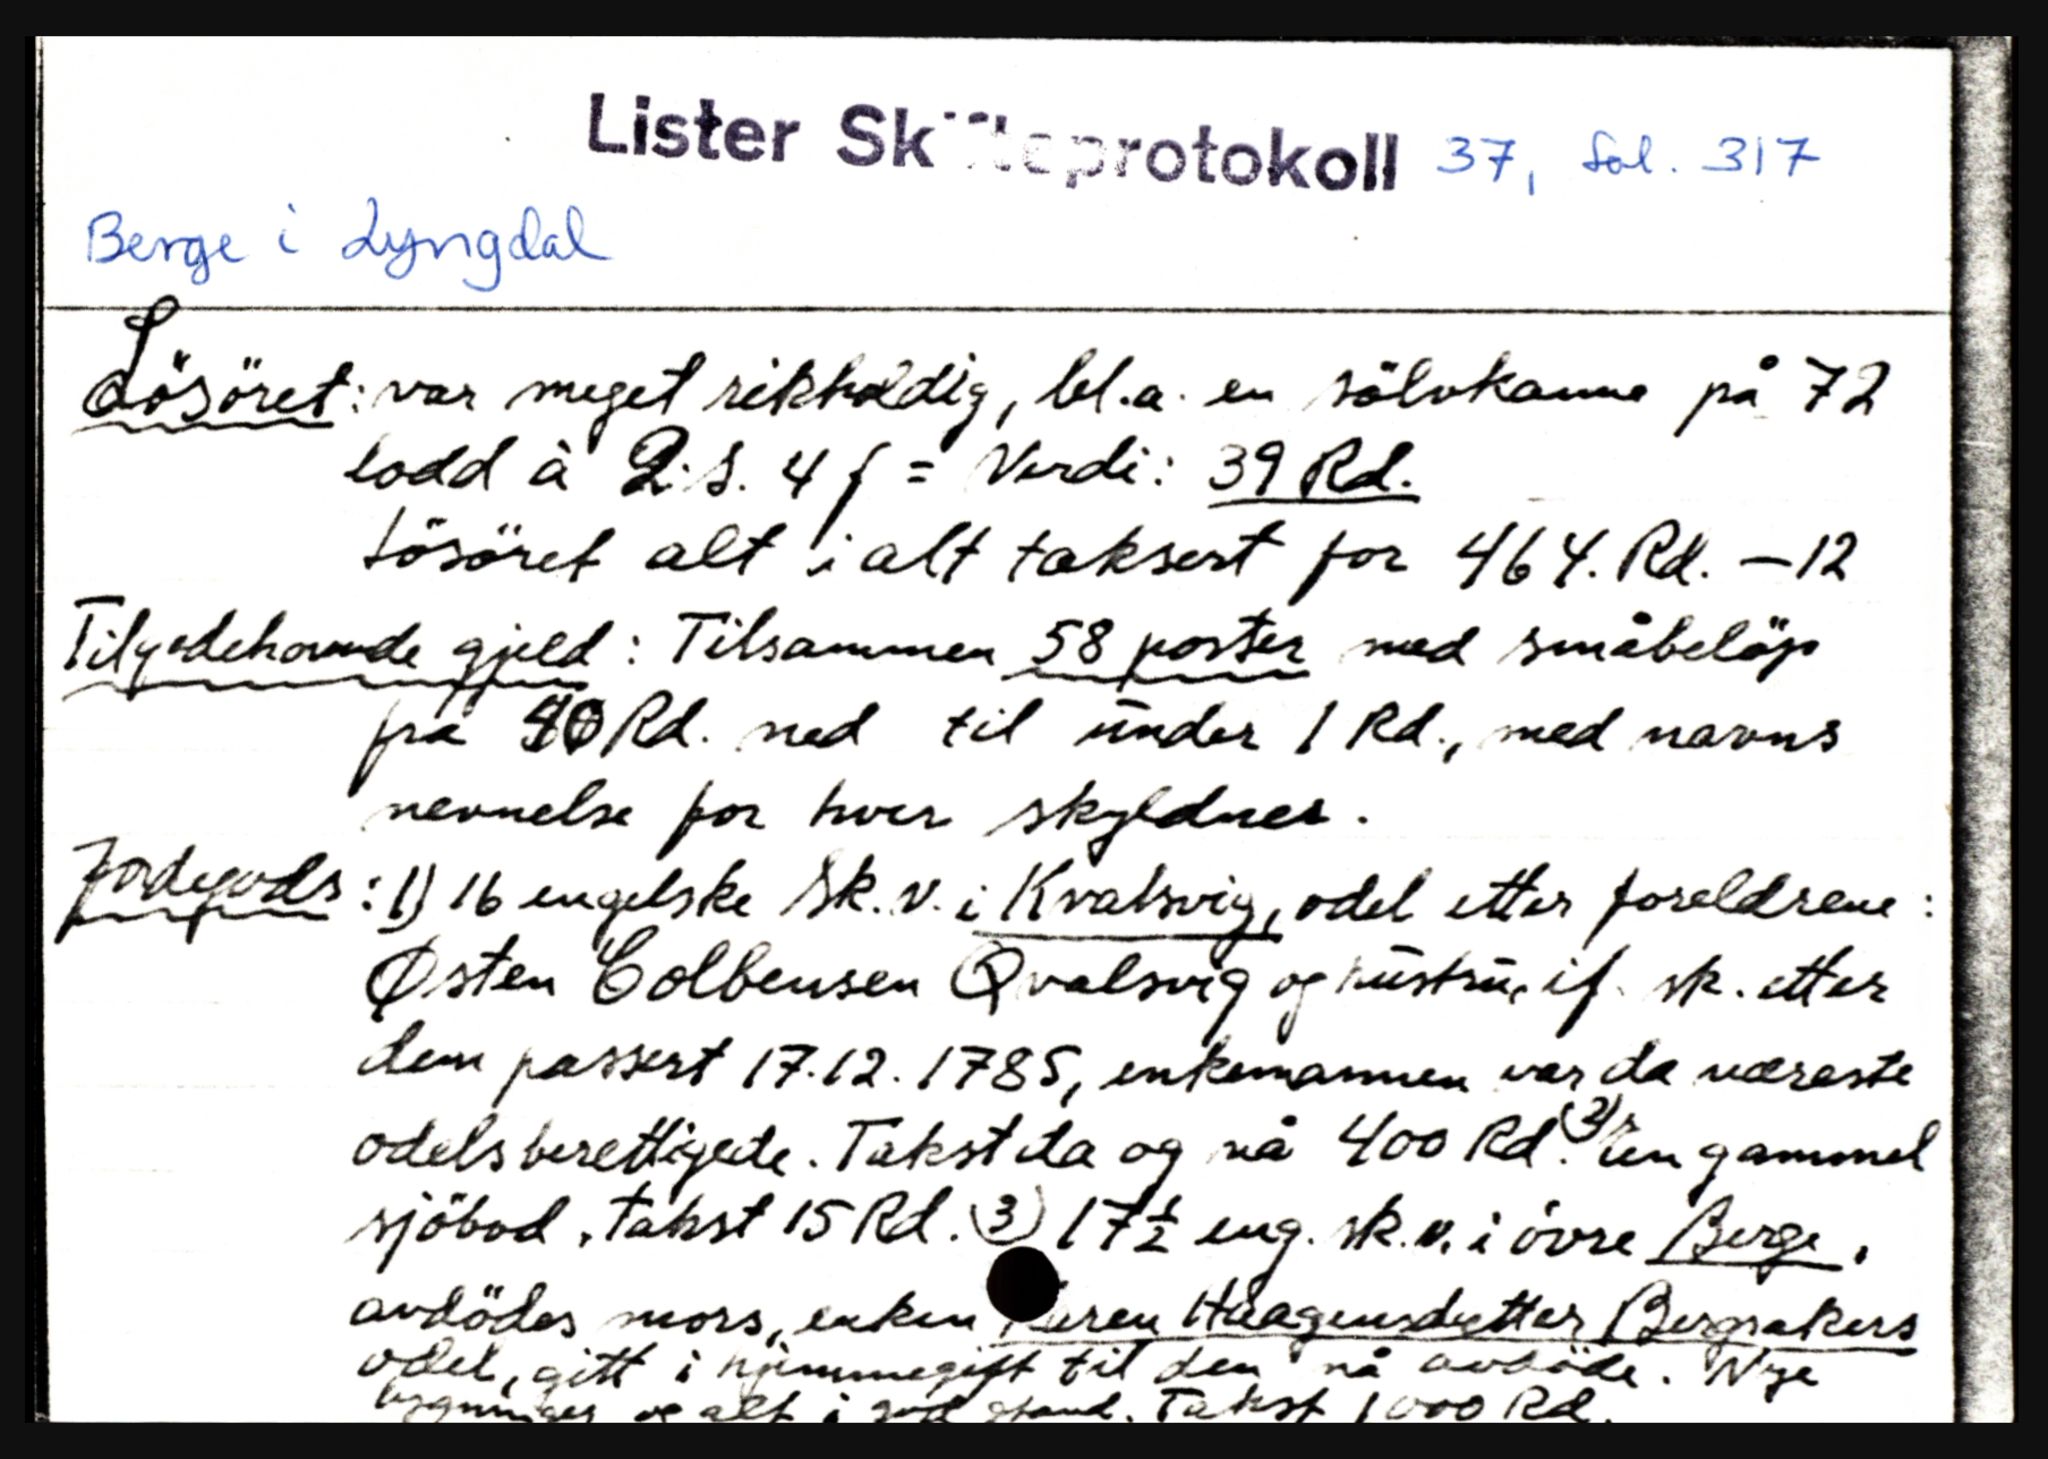 Lister Skifteprotokoll 37, fol. 317
Berge i Lyngdal
Lösöret: var meget rikholdig, bl.a. en sölvkanne på 72
lodd à 2 s. 4 f = Verdi: 39 Rd.
Lösöret alt i alt taksert for 464. Rd. – 12
Tilgodehavende gjeld: Tilsammen 58 poster med småbelöp
fra 40 Rd. ned til under 1 Rd., med navns
nevnelse for hver skyldner.
Jordegods: 1) 16 engelske sk. v. i Kvalsvig, odel etter foreldrene:
Østen Colbensen Qvalsvig og hustru, if. sk. etter
dem passert 17.12.1785, enkemannen var da næreste
odelsberettigede. Takst da og nå 400 Rd. 2) en gammel
sjöbod. Takst 15 Rd. 3) 17½ eng. sk. v. i övre Berge,
avdödes mors, enken Karen Haagensdatter Bergsakers
odel, gitt i hjemmegift til den nå avdöde. Nye
bygninger og alt i god stand. Takst 1000 Rd.